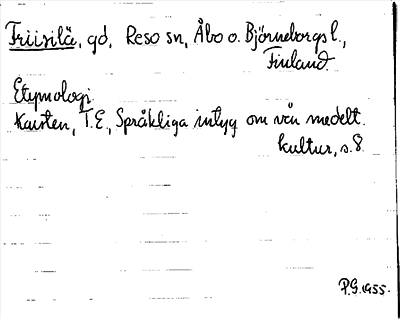 Friisilä, gd, Reso sn, Åbo o. Björneborgs l.,
Finland.
Etymologi.
Karsten, T.E., Språkliga intyg om vår medelt.
kultur, s. 8
P.G. 1955.